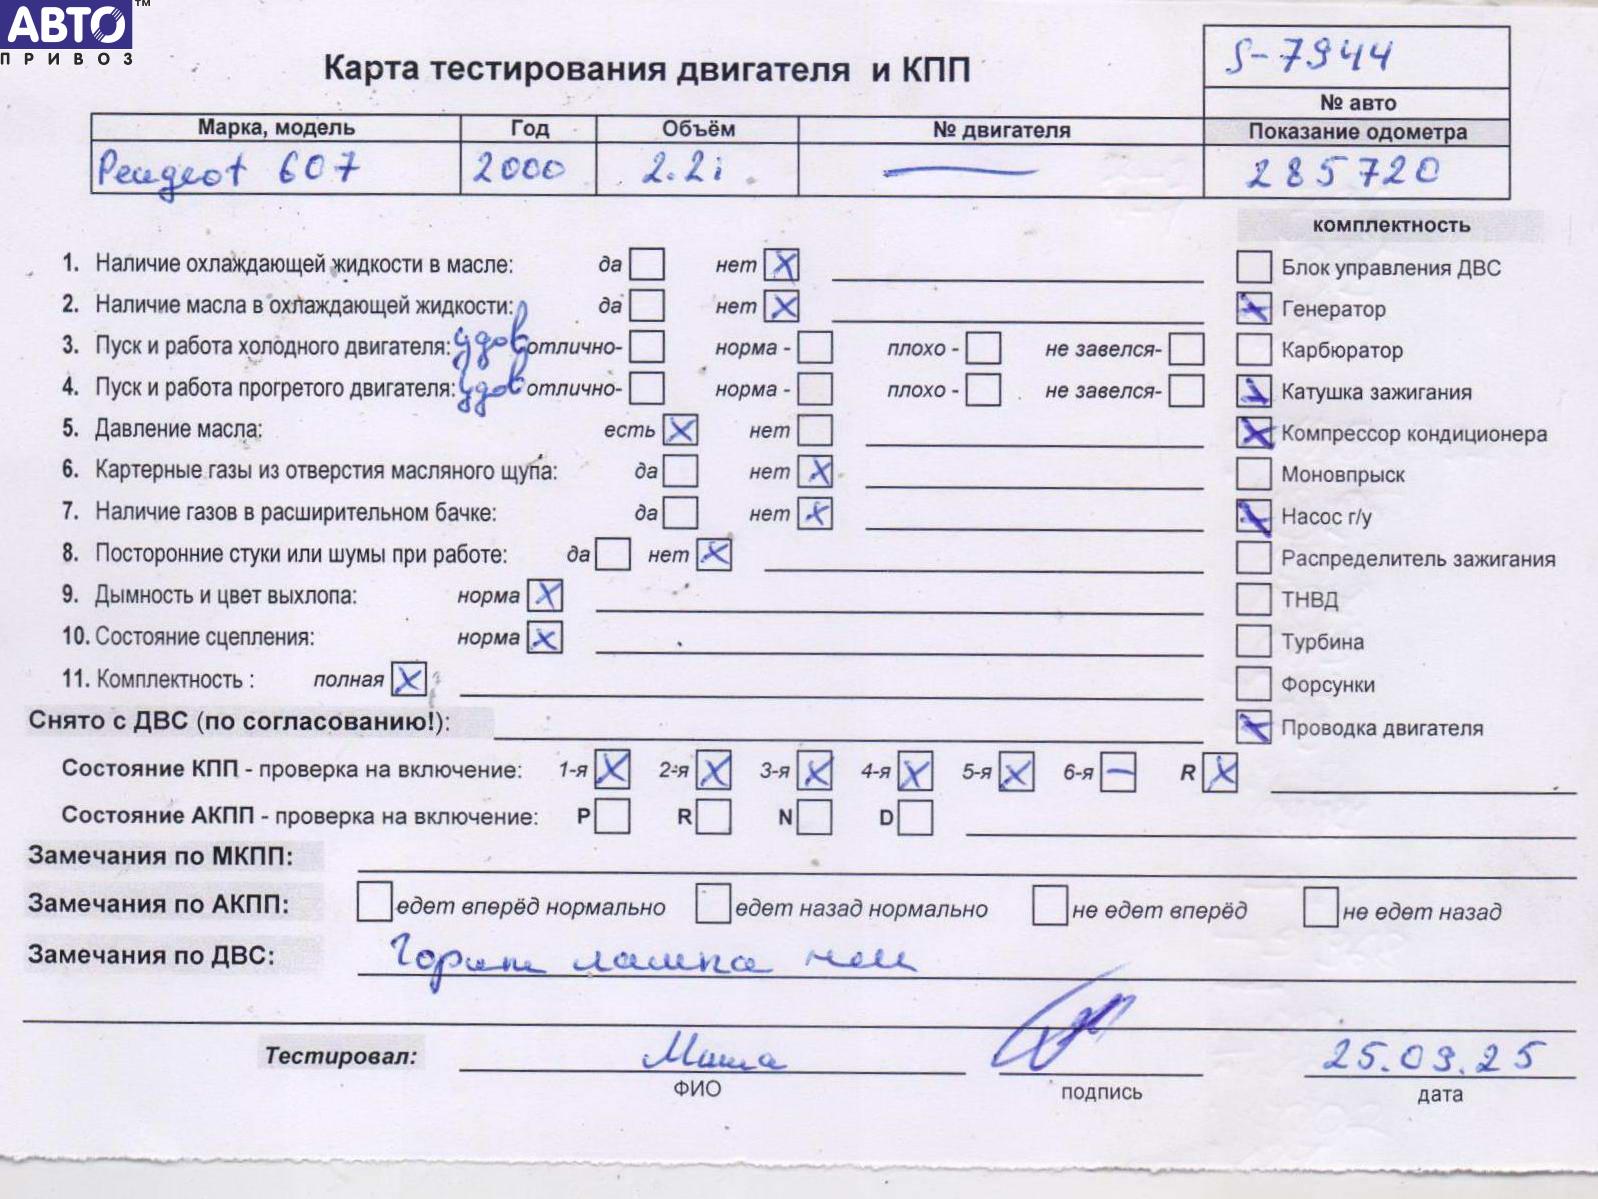 АВТО™
ПРИВОЗ
Карта тестирования двигателя и КПП
S-7944
№ авто
Марка, модель Год Объём № двигателя Показание одометра
Peugeot 607 2000 2.2i — 285720
комплектность
1. Наличие охлаждающей жидкости в масле: да нет X
Блок управления ДВС
2. Наличие масла в охлаждающей жидкости: да нет X
Генератор
3. Пуск и работа холодного двигателя: удов отлично- норма - плохо - не завелся-
Карбюратор
4. Пуск и работа прогретого двигателя: удов отлично- норма - плохо - не завелся-
Катушка зажигания
5. Давление масла: есть X нет
Компрессор кондиционера
6. Картерные газы из отверстия масляного щупа: да нет X
Моновпрыск
7. Наличие газов в расширительном бачке: да нет X
Насос г/у
8. Посторонние стуки или шумы при работе: да нет X
Распределитель зажигания
9. Дымность и цвет выхлопа: норма X
ТНВД
10. Состояние сцепления: норма X
Турбина
11. Комплектность : полная X
Форсунки
Снято с ДВС (по согласованию!):
Проводка двигателя
Состояние КПП - проверка на включение: 1-я X 2-я X 3-я X 4-я X 5-я X 6-я — R X
Состояние АКПП - проверка на включение: P R N D
Замечания по МКПП:
Замечания по АКПП: едет вперёд нормально едет назад нормально не едет вперёд не едет назад
Замечания по ДВС: Горит лампа
Тестировал: Миша 25.03.25
ФИО подпись дата